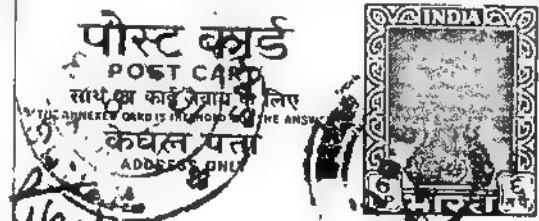 पोस्ट कार्ड
POST CARD
साथ का कार्ड जवाब के लिए
THE ANNEXED CARD IS INTENDED FOR THE ANSWER
केवल पता
ADDRESS ONLY
INDIA
6 P
भारत